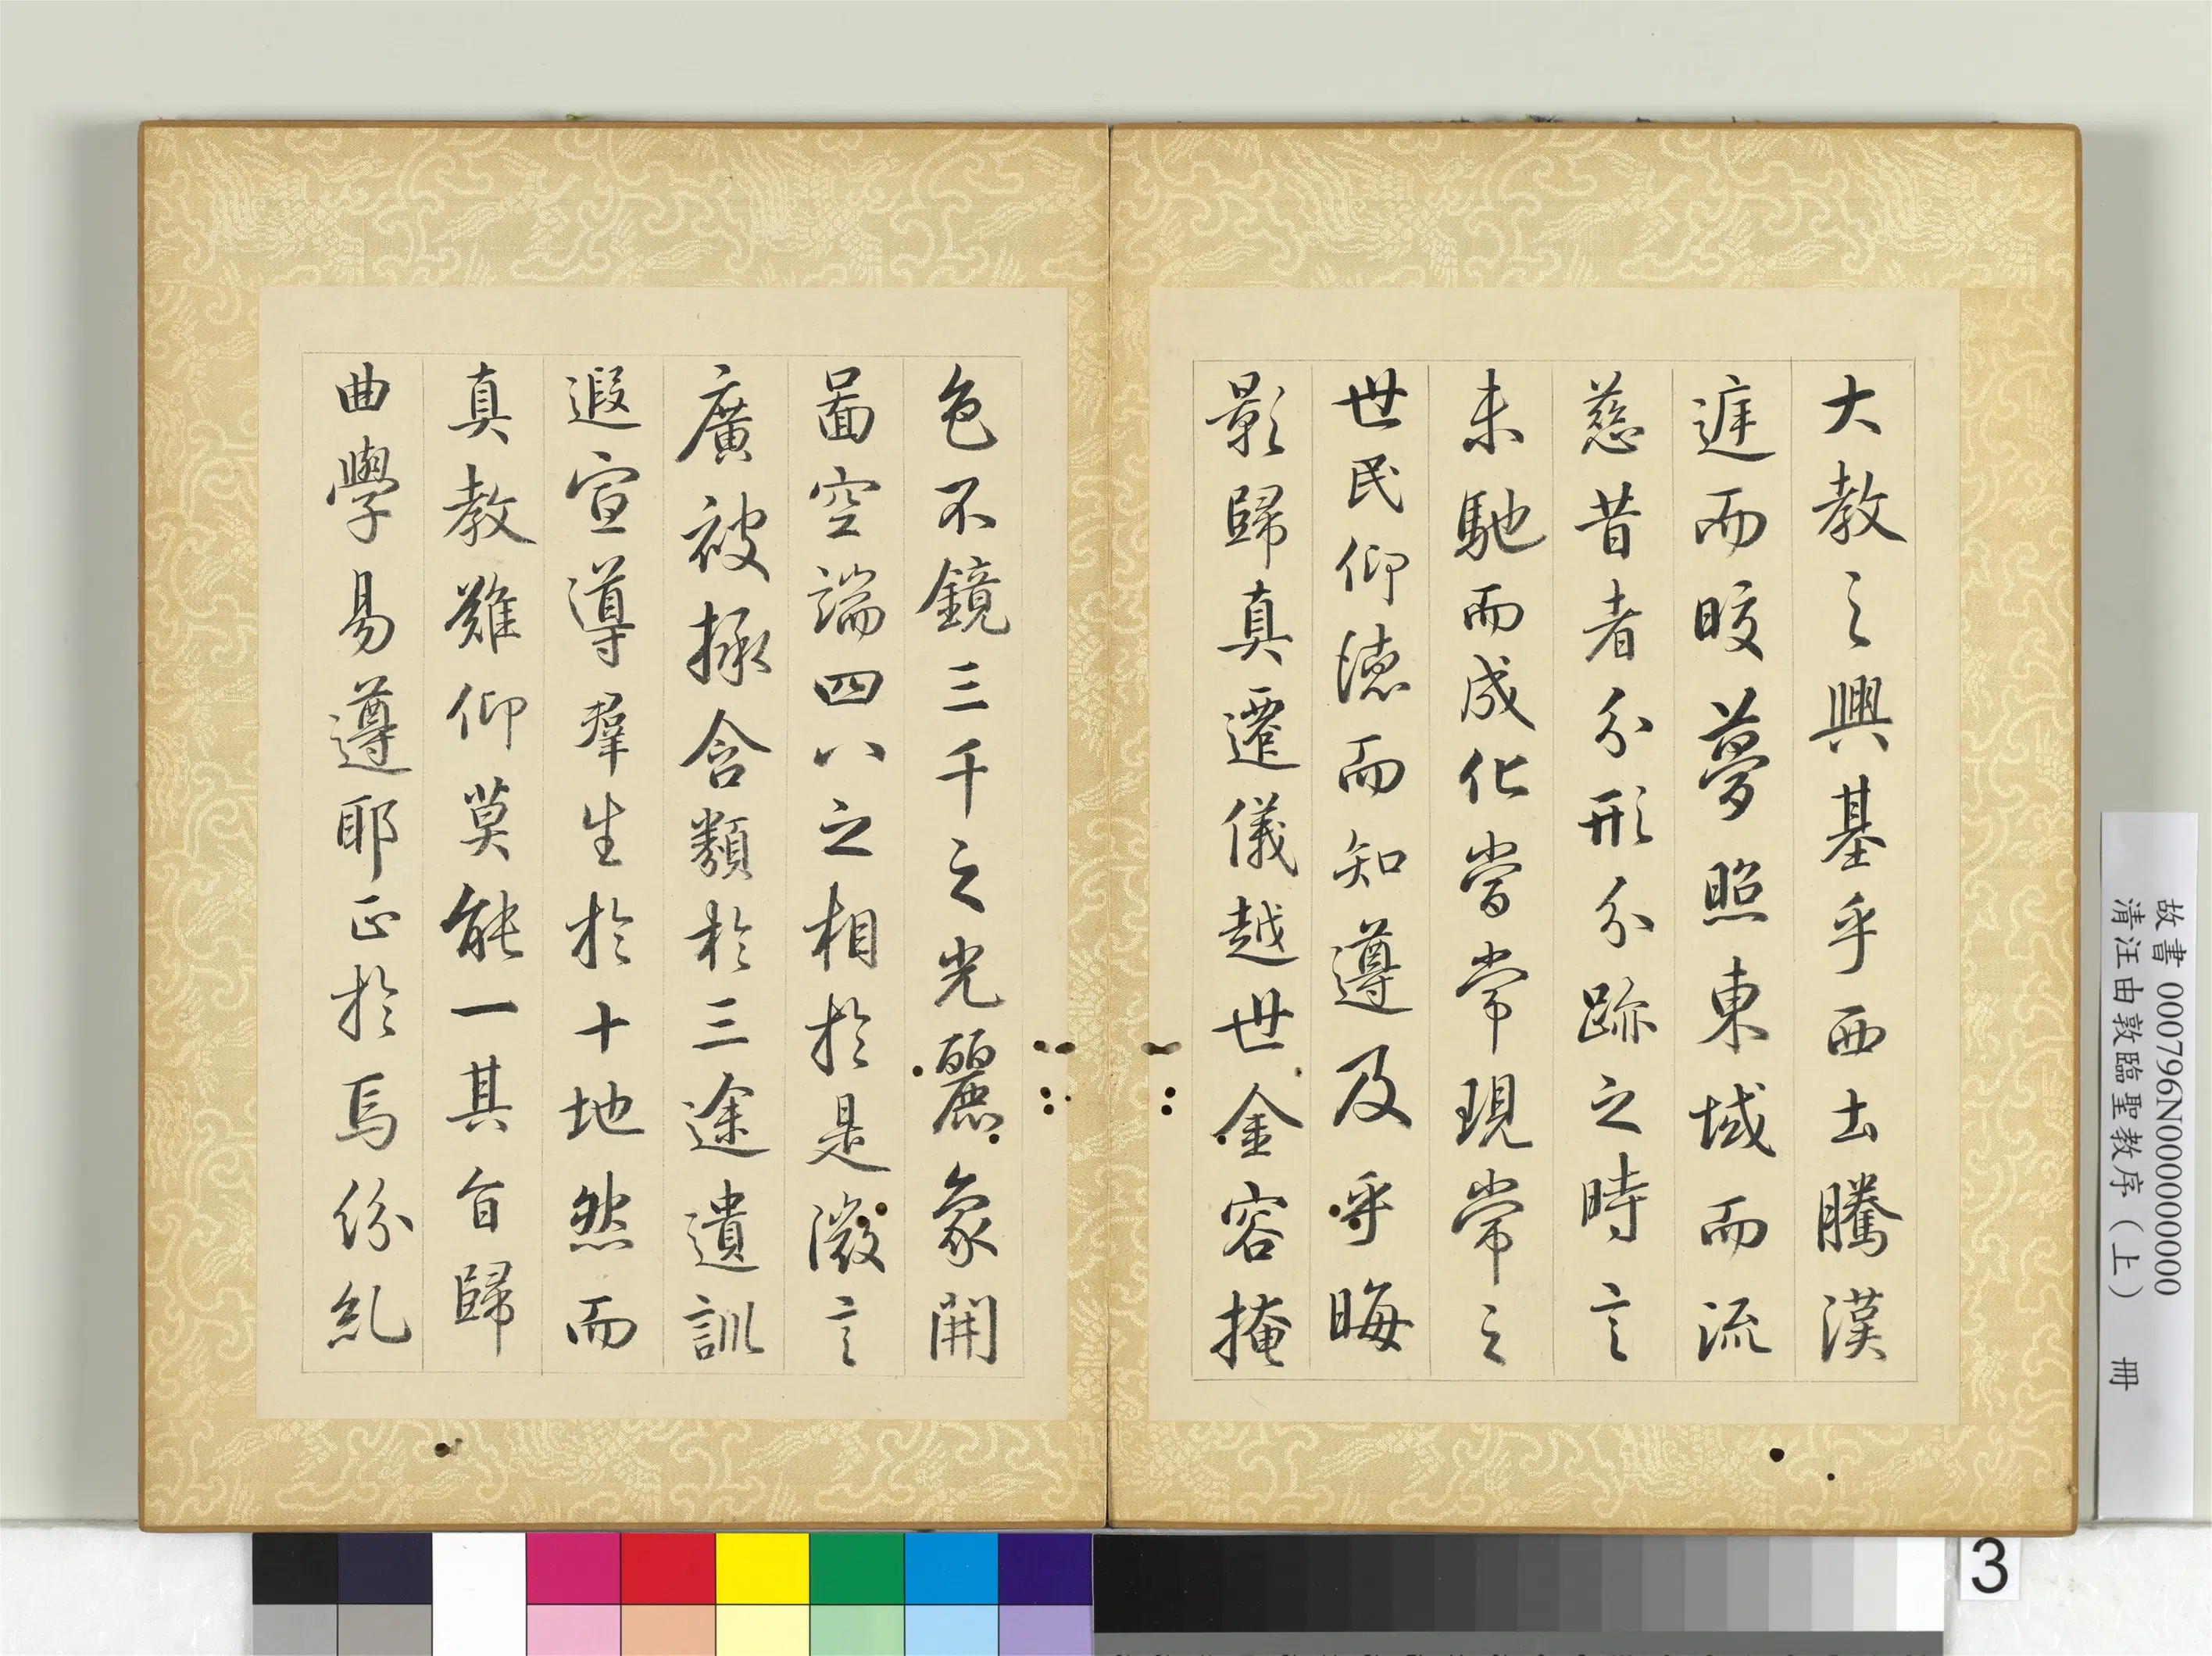 大教之興基乎西土騰漢
庭而晈夢照東域而流
慈昔者分形分跡之時言
未馳而成化當常現常之
世民仰德而知遵及乎晦
影歸真遷儀越世金容掩
色不鏡三千之光麗象開
圖空端四八之相於是微言
廣被拯含類於三途遺訓
遐宣導羣生於十地然而
真教難仰莫能一其旨歸
曲學易遵耶正於焉紛糺
故書 000796N000000000
清汪由敦臨聖教序（上） 冊
3